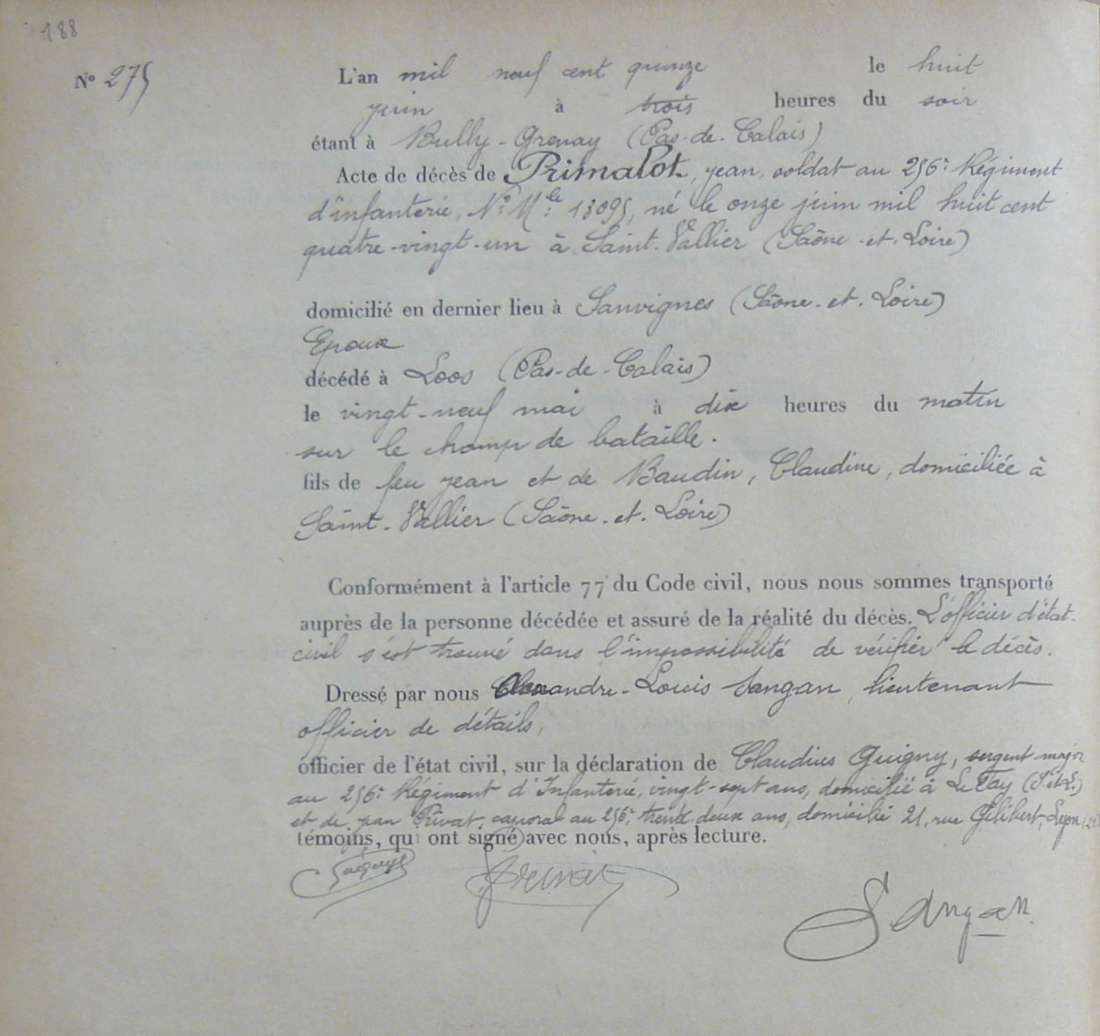 188
N° 275
L'an mil neuf cent quinze le huit
juin à trois heures du soir
étant à Bully-Grenay (Pas-de-Calais)
Acte de décès de Primalot, jean, soldat au 256e Régiment
d'infanterie, N° Mle: 13095, né le onze juin mil huit cent
quatre-vingt-un à Saint-Vallier (Saône-et-Loire)
domicilié en dernier lieu à Sanvignes (Saône-et-Loire)
Epoux
décédé à Loos (Pas-de-Calais)
le vingt-neuf mai à dix heures du matin
sur le champ de bataille.
fils de feu jean et de Baudin, Claudine, domiciliée à
Saint-Vallier (Saône-et-Loire)
Conformément à l'article 77 du Code civil, nous nous sommes transporté
auprès de la personne décédée et assuré de la réalité du décès. L'officier d'état-
civil s'est trouvé dans l'impossibilité de vérifier le décès.
Dressé par nous Alexandre-Louis Sangan, lieutenant
officier de détails,
officier de l'état civil, sur la déclaration de Claudius Guigny, sergent major
au 256e Régiment d'Infanterie, vingt-sept ans, domicilié à Le Fay
et de jean Privat, caporal au 256e trente deux ans, domicilié 21, rue Gilibert, Lyon
témoins, qui ont signé avec nous, après lecture.
Guigny Privat
Sangan